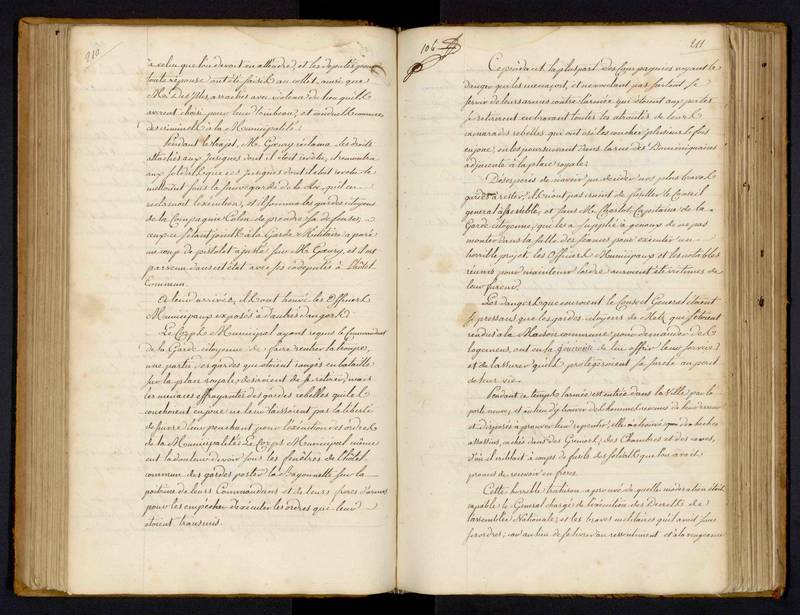 210
a celui que l'on devoit en attendre, et les deputés pour
toute reponse ont été saisis au collet ainsi que
M. Des Isles, arrachés avec violence du lieu qu'ils
avoient choisi pour leur tombeau, et conduits comme
des criminels à la Municipalité.
Pendant le trajet, M. Gœury reclama les droits
attachés aux Insignes dont il étoit revêtu, il remontra
aux soldats que ces Insignes dont il étoit revêtu le
mettoient sous la sauvegarde de la Loi, qu'il en
reclamoit l'execution, et il somma les gardes citoyens
de la Compagnie Colin de prendre sa defense,
ceux-ci s'étant joints à la Garde Militaire a paré
un coup de pistolet ajusté sur M. Gœury, et il est
parvenu dans cet état avec ses codeputés à l'hôtel
Commun.
A leur arrivée, ils ont trouvé les Officiers
Municipaux exposés à d'autres dangers.
Le Corps Municipal ayant requis le Commandant
de la Garde citoyenne de faire rentrer la troupe,
une partie des gardes qui étoient rangés en bataille
sur la place royale, desiroient de se retirer, mais
les menaces effrayantes des gardes rebelles qui les
couchoient en joue ne leur laissoient pas la liberté
de suivre leur penchant pour l'execution des ordres
de la Municipalité. Le Corps Municipal même
eut la douleur de voir sous les fenêtres de l'hôtel
commun des gardes porter la Bayonnette sur la
poitrine de leurs Commandans et de leurs freres d'armes
pour les empecher d'executer les ordres qui leur
etoient transmis.
106
211
Cependant la plus part des Compagnies voyant le
danger qui les menaçoit, et ne voulant pas surtout se
servir de leurs armes contre l'armée qui étoient aux portes
se retirerent en bravant toutes les atrocités de leurs
camarades rebelles qui ont osé les coucher plusieurs fois
en joue, en les poursuivant dans la rue des Dominiquains
adjacente à la place royale.
Désesperés de n'avoir pu decider nos plus braves
gardes à rester, ils n'ont pas craint de fusiller le Conseil
general assemblé, et sans M. Charlot, Capitaine de la
Garde citoyenne, qui les a supplié à genoux de ne pas
monter dans la salle des seances pour executer un
horrible projet, les Officiers Municipaux et les notables
réunis pour maintenir l'ordre auroient été victimes de
leur fureur.
Les dangers que couroient le Conseil General étoient
si pressans que les gardes citoyens de Metz qui s'étoient
rendus à la Maison commune pour demander des
logemens, ont eu la générosité de lui offrir leur service
et de l'assurer qu'ils protegeroient sa sureté au peril
de leur vie.
Pendant ce temps l'armée est entrée dans la Ville par la
porte neuve, et au lieu d'y trouver des hommes revenus de leur erreur
et disposés à prouver leur repentir, elle n'a trouvé que des laches
assassins, cachés dans des Greniers, des Chambres et des caves,
d'où ils tiroient à coups de fusils des soldats que l'on avoit
promis de recevoir en freres.
Cette horrible trahison a prouvé de quelle modération étoit
capable le General chargé de l'execution des Decrets de
l'assemblée Nationale, et les braves militaires qu'il avoit sous
ses ordres; car au lieu de se livrer au ressentiment et à la vengeance